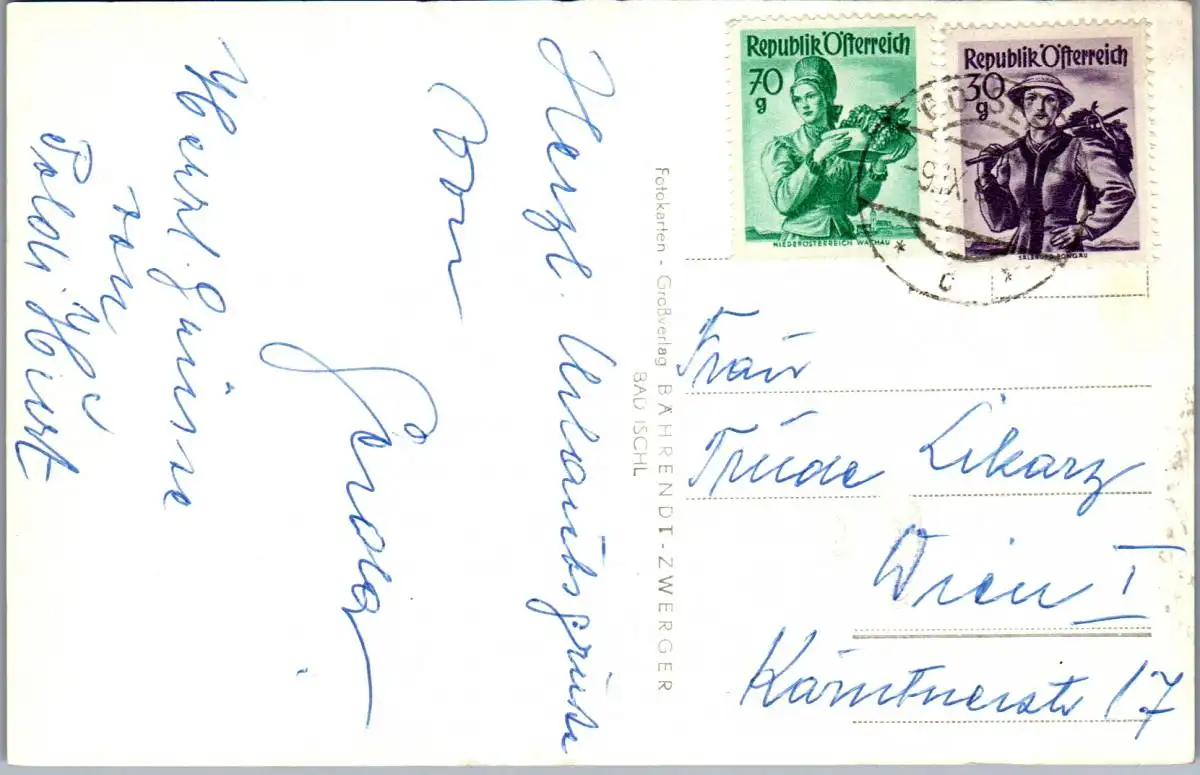 Herzl. Urlaubsgrüße
von
Herzl. Grüsse
von
Poldi Hirt
Fotokarten - Großverlag BÄHRENDT - ZWERGER
BAD ISCHL
Republik Österreich
70 g
NIEDERÖSTERREICH WACHAU
Republik Österreich
30 g
SALZBURG PONGAU
GOS
9.IX.
* c *
Frau
Trude Likarz
Wien I
Kärntnerstr 17